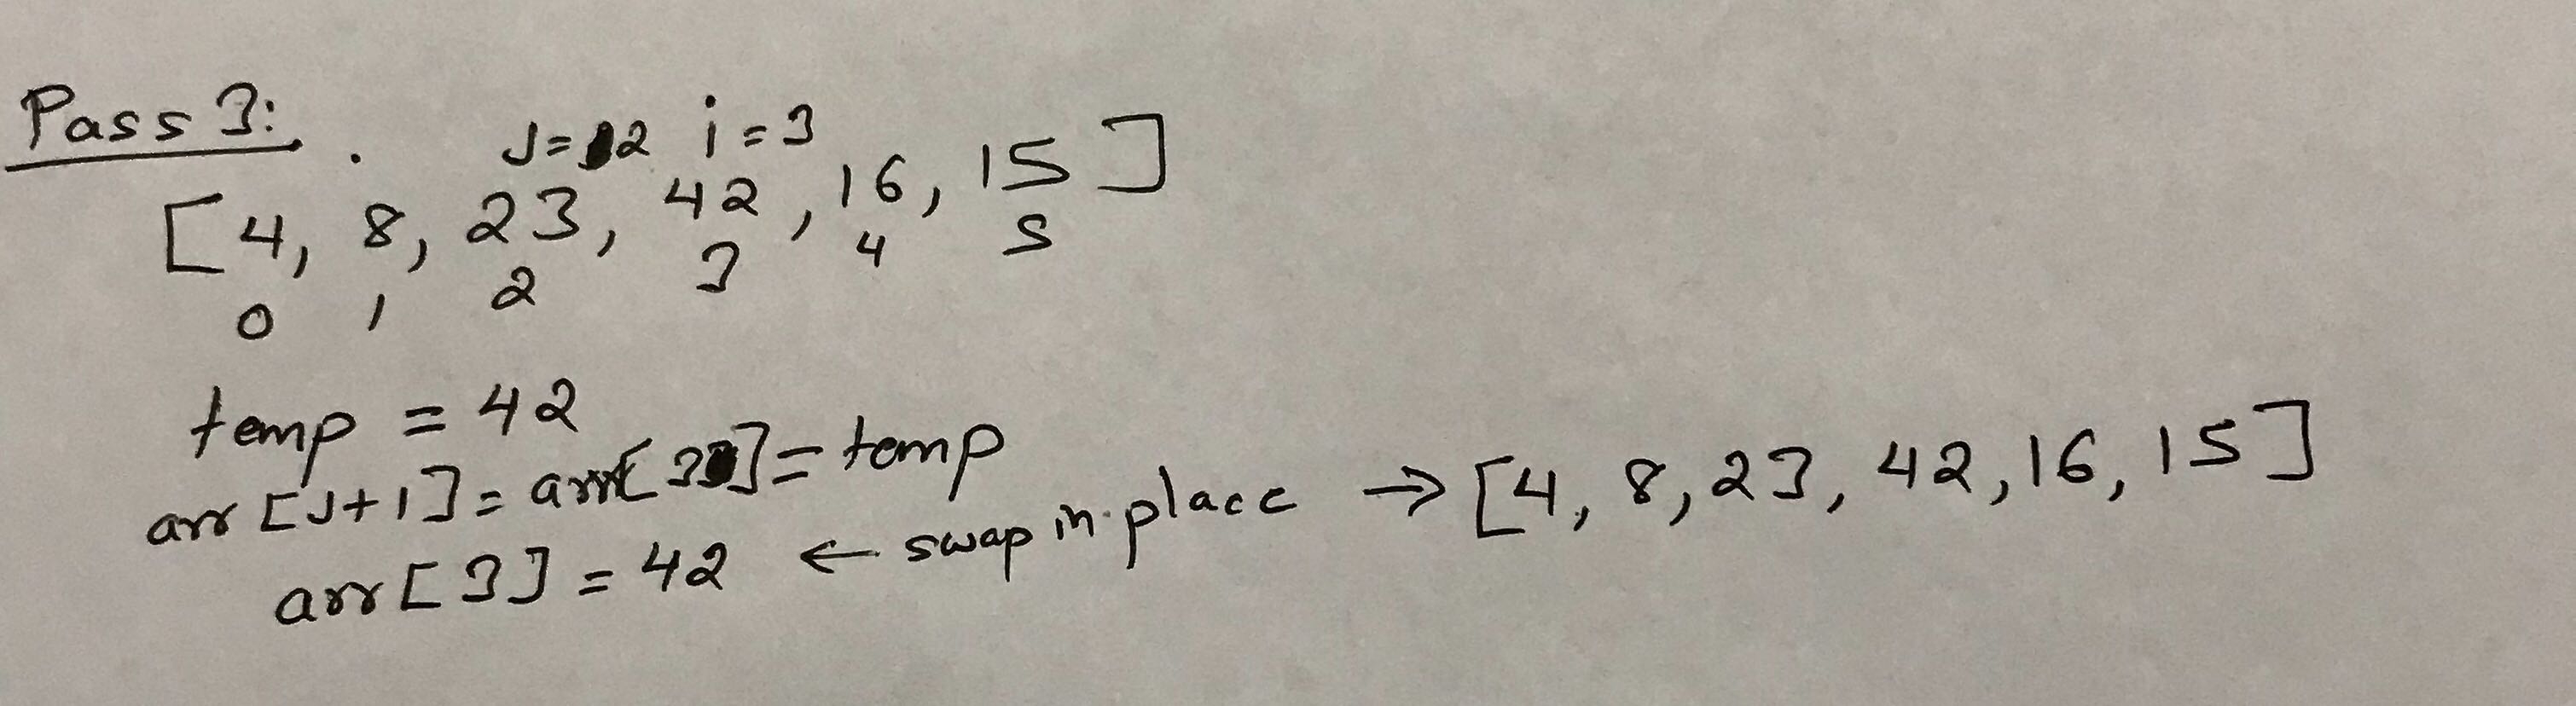 Pass 3:
J=2 i=3
[4, 8, 23, 42, 16, 15]
0 1 2 3 4 5
temp = 42
arr[J+1] = arr[3] = temp
arr[3] = 42 ← swap in-place → [4, 8, 23, 42, 16, 15]